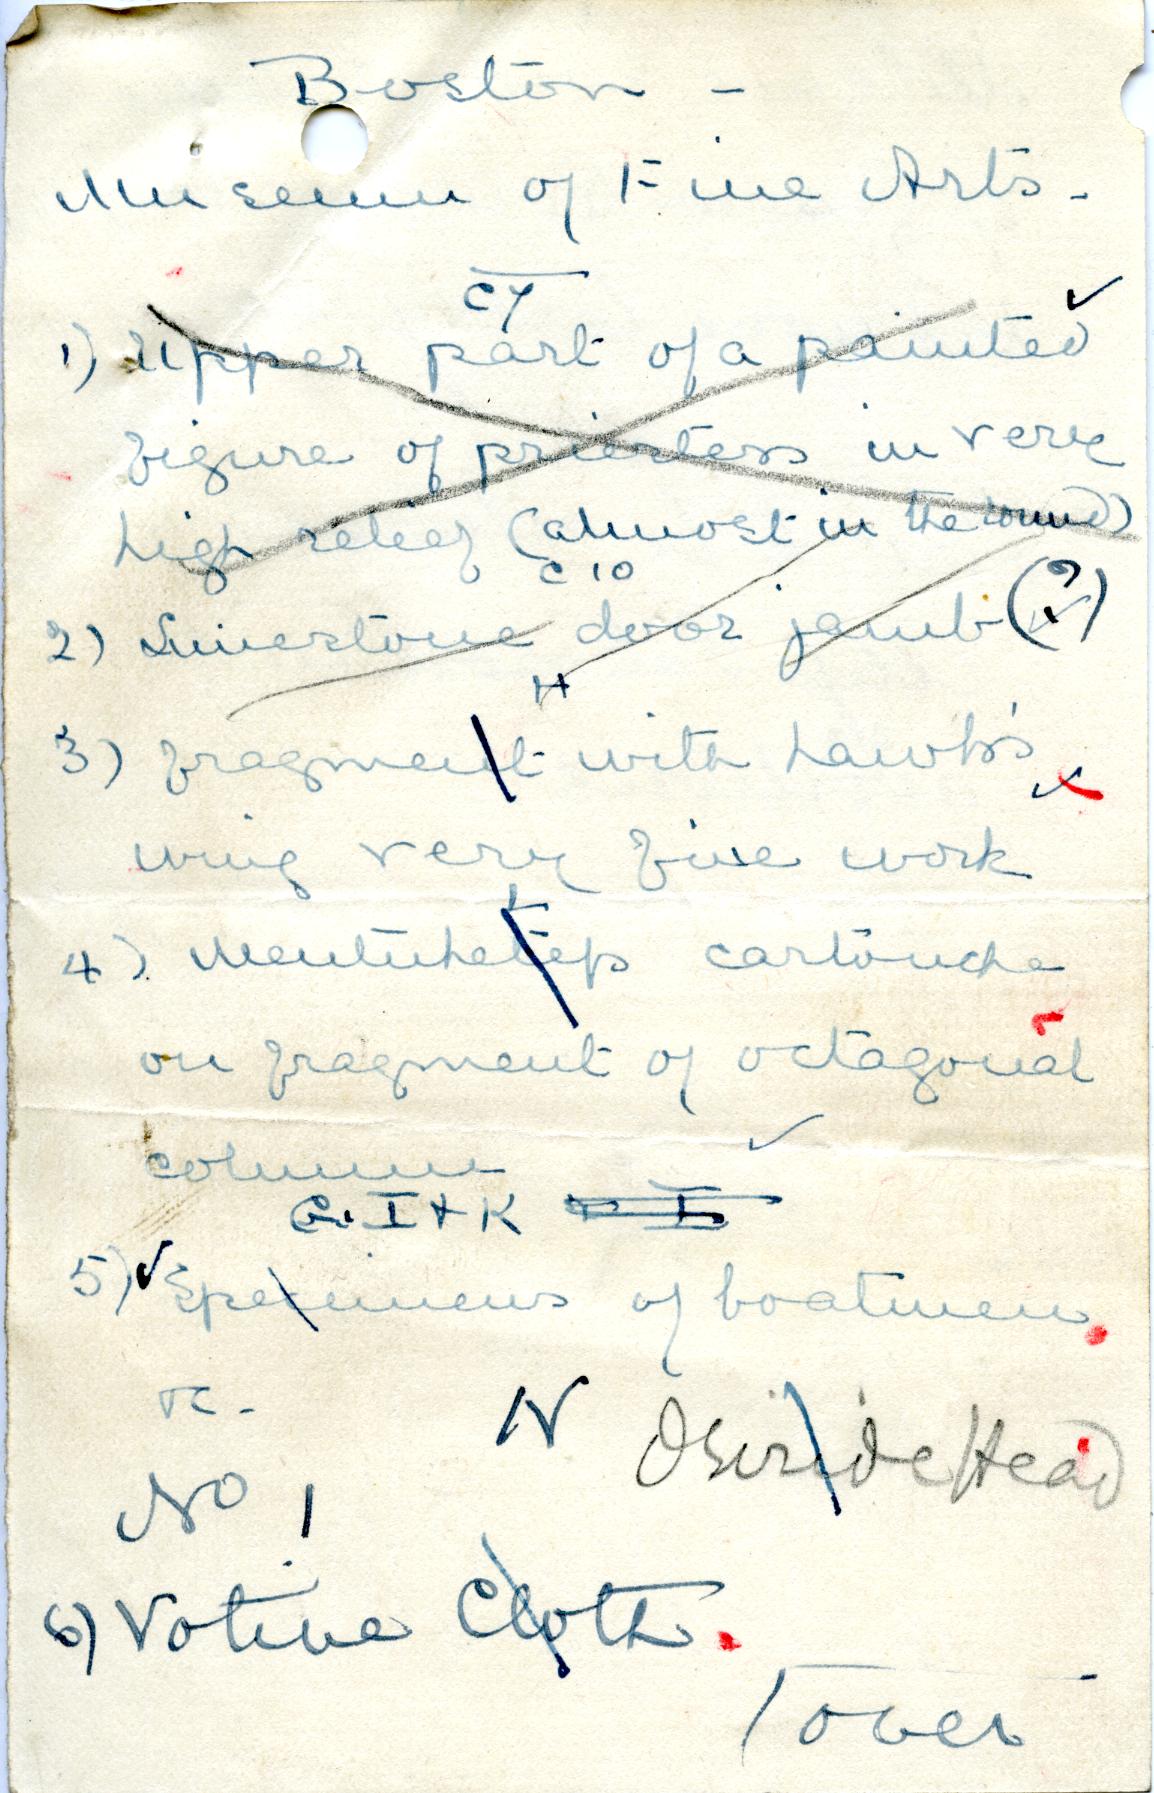 Boston -
Museum of Fine Arts -
C7
1) Upper part of a painted ✓
figure of priestess in very
high relief (almost in the round)
C 10
2) Limestone door jamb (?)
H
3) fragment with hawk's
wing very fine work
L
4) Mentuhetep cartouche
on fragment of octagonal
column ✓
G. I + K
5) ✓ Specimens of boatmen
&c -
N Osiride Head
No 1
6) Votive Cloth.
/ over